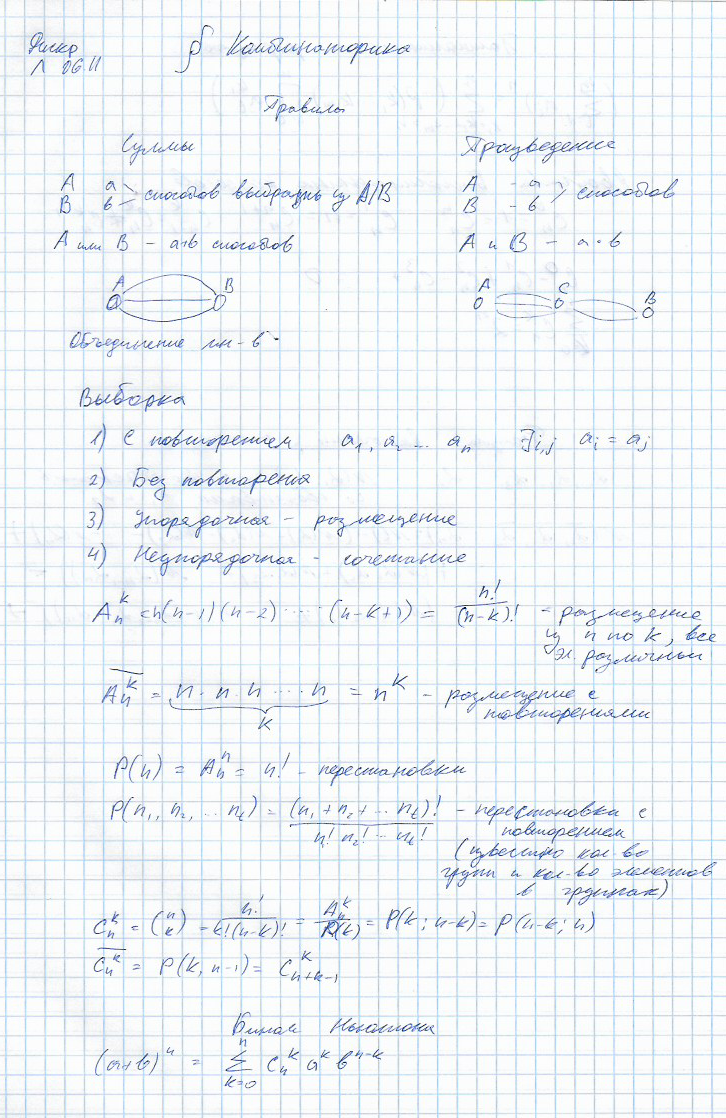 Дискр
Л 06.11
§ Комбинаторика
Правила
Суммы
A a
B b > способов выбрать из A/B
A или B – a+b способов
A B
Объединение мн-в
Произведение
A – a
B – b > способов
A и B – a·b
A C B
Выборка
1) С повторением a₁, a₂ ... aₙ ∃i,j aᵢ = aⱼ
2) Без повторения
3) Упорядочная – размещение
4) Неупорядочная – сочетание
Aₙᵏ = n(n-1)(n-2)·····(n-k+1) = n!/(n-k)! – размещение
из n по k, все
эл. различны
A̅ₙᵏ = n·n·n·...·n (k) = nᵏ – размещение с
повторениями
P(n) = Aₙⁿ = n! – перестановки
P(n₁, n₂, ... nₜ) = (n₁ + n₂ + ... nₜ)!/(n! n₂! ... nₜ!) – перестановки с
повторением
(известно кол-во
групп и кол-во элементов
в группах)
Cₙᵏ = (n k) = n!/(k!(n-k)!) = Aₙᵏ/P(k) = P(k; n-k) = P(n-k; n)
C̅ₙᵏ = P(k, n-1) = Cₙ₊ₖ₋₁ᵏ
Бином Ньютона
(a+b)ⁿ = Σₖ₌₀ⁿ Cₙᵏ aᵏ bⁿ⁻ᵏ